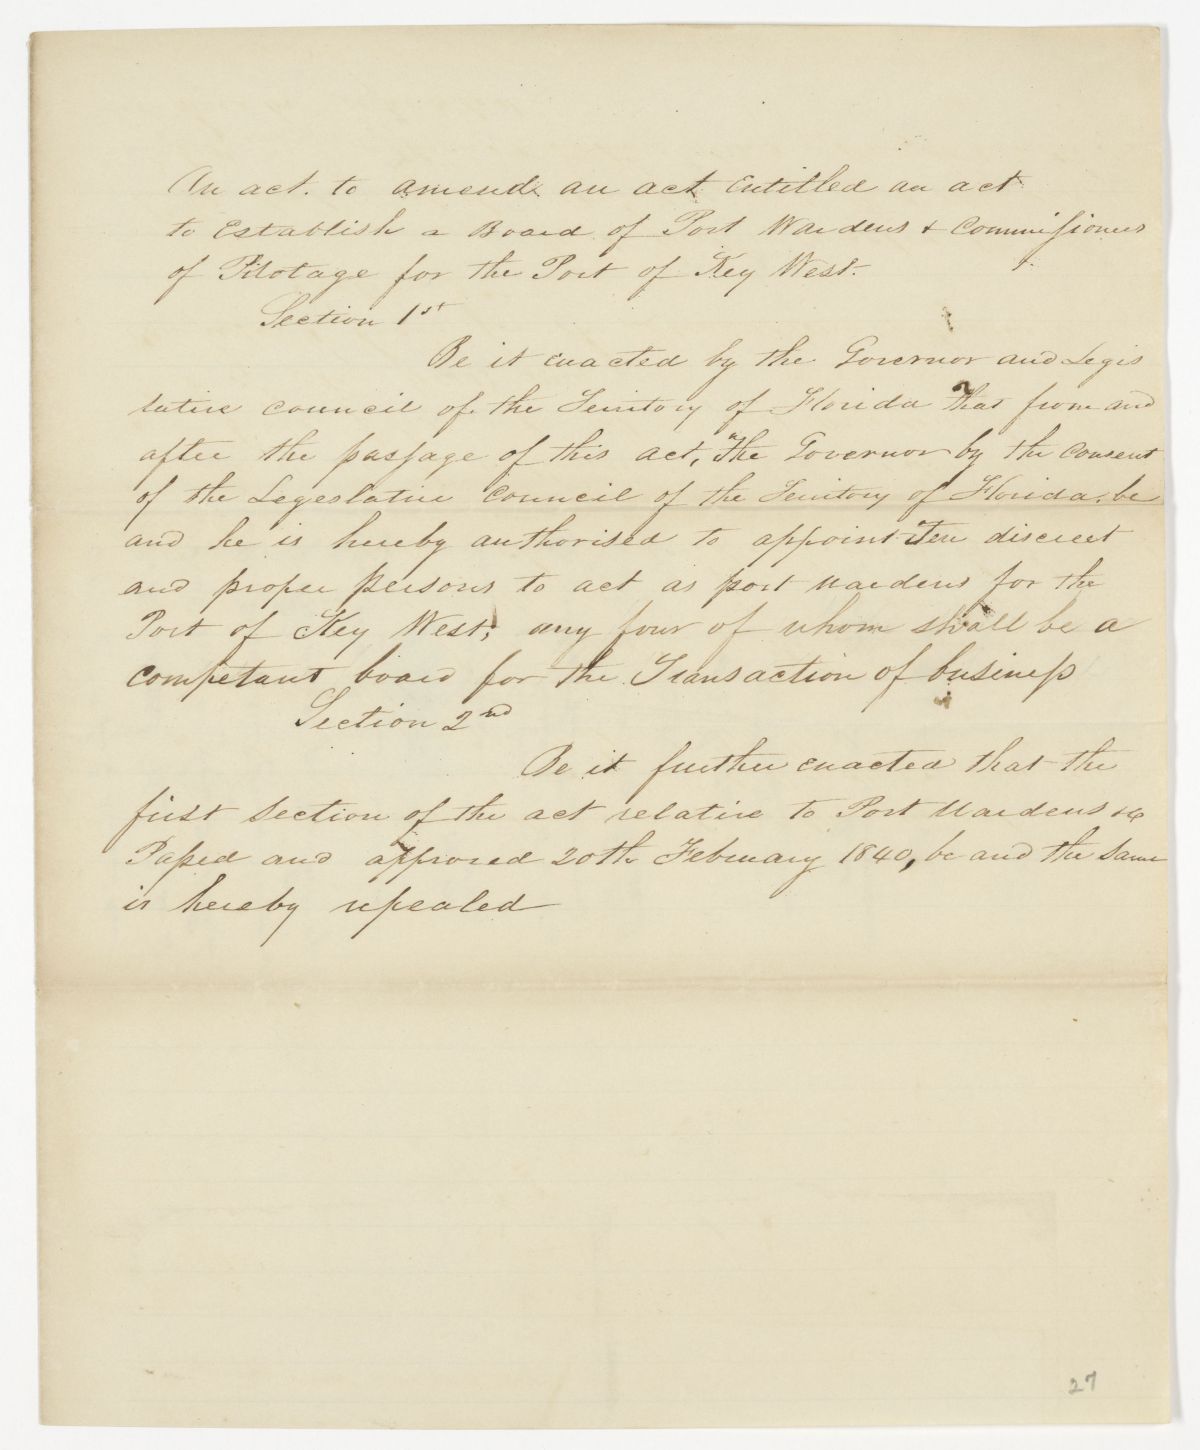 An act. to amend an act Entitled an act
to Establish a Board of Port Wardens & Commissioners
of Pilotage for the Port of Key West.
Section 1st
Be it enacted by the Governor and Legis
lative council of the Territory of Florida That from and
after the passage of this act, The Governor by the consent
of the Legeslative council of the Territory of Florida. be
and he is hereby authorised to appoint Ten discreet
and proper persons to act as port wardens for the
Port of Key West; any four of whom shall be a
competant board for the Transaction of business
Section 2nd
Be it further enacted that the
first section of the act relative to Port Wardens &c
Passed and approved 20th February 1840, be and the same
is hereby repealed
27